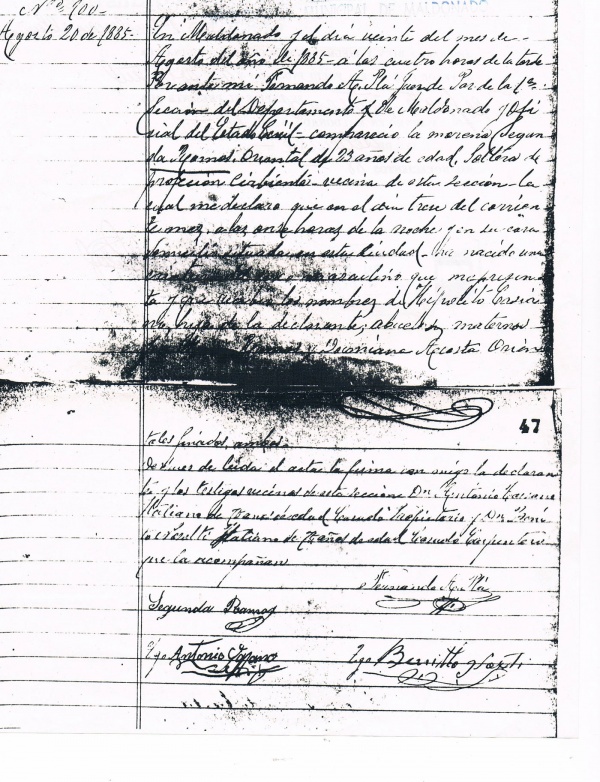 Nº 100.
Agosto 20 de 1885.
DE MALDONADO
En Maldonado y el dia veinte del mes de
Agosto del año de 1885 - á las cuatro horas de la tarde
Por ante mi Fernando A. Plá Juez de Paz de la 1ra
Seccion del Departamento de Maldonado y Ofi
cial del Estado Civil - comparecio la morena Segun
da Ramos Oriental de 23 años de edad, Soltera de
profecion Cirbienta vecina de esta Seccion - la
cual me declaró que en el dia trece del corrien
te mes, a las onse horas de la noche y en su casa
domicilio situada en esta Ciudad - ha nacido una
masculino que me presen
ta y que los nombres de Hipolito Casia
no, de la declarante, abuelos maternos
y Acosta Orien
47
tales finados, ambos.
Despues de leida el acta la firma con migo la declaran
te, y los testigos vecinos de esta seccion Dn Antonio
Italiano de edad Casado Propietario y Dn
Italiano de años de edad Casado Carpintero
que la acompañan
Fernando A. Plá
Segunda Ramos
Tgo Antonio
Tgo